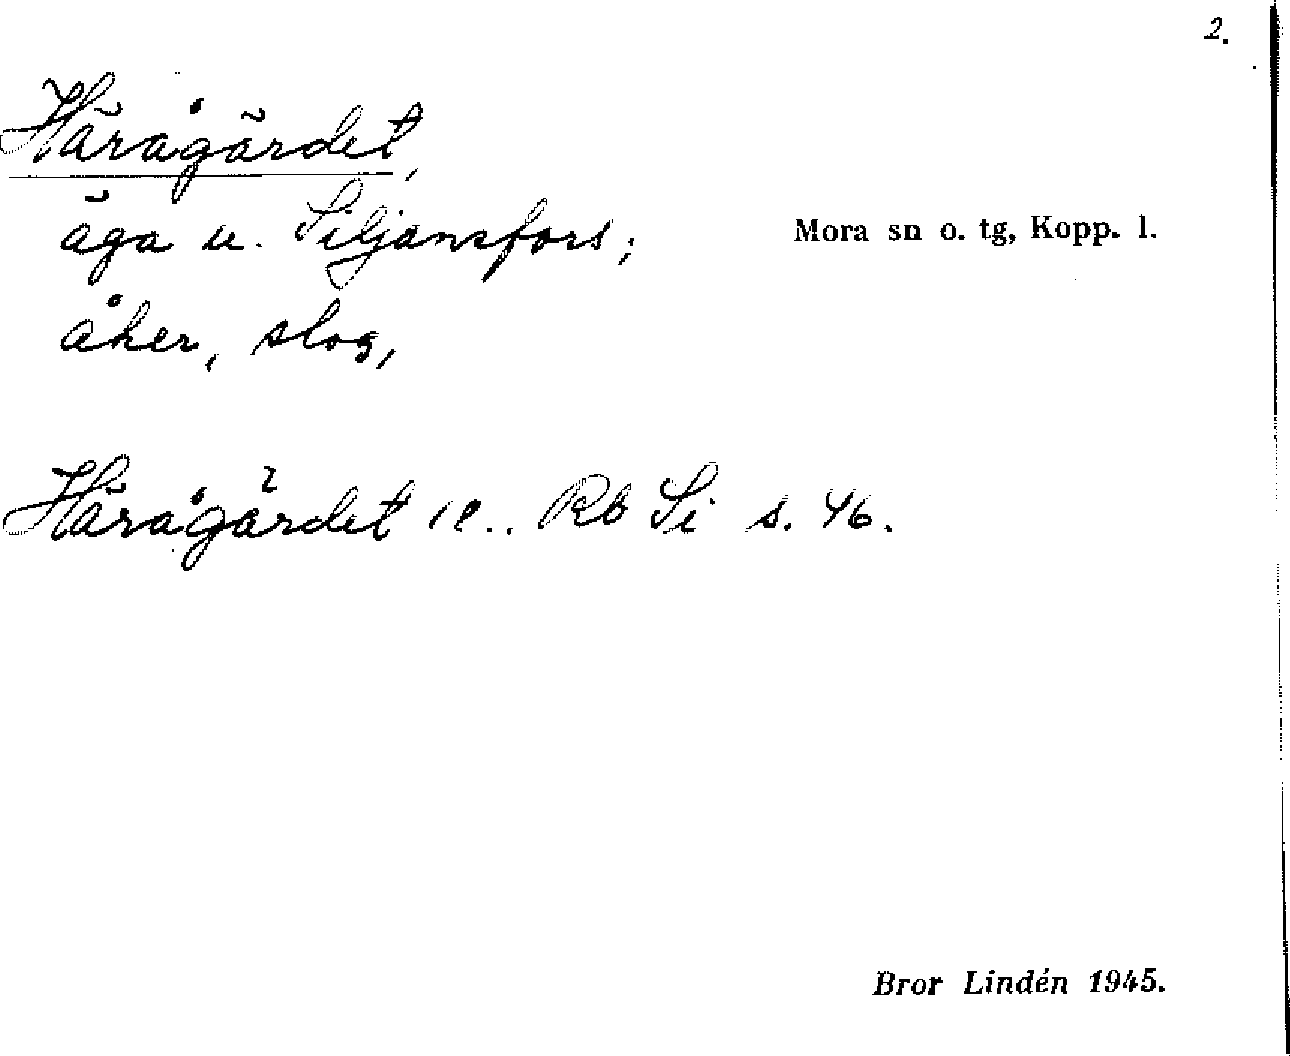 2.
Häragärdet,
äga u. Siljansfors;
Mora sn o. tg, Kopp. l.
åker, slog,
Häragärdet Rb Si s. 46.
Bror Lindén 1945.